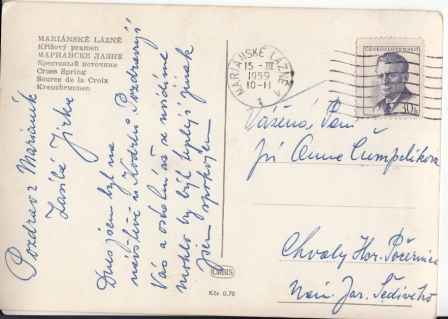 MARIÁNSKÉ LÁZNĚ
Křížový pramen
МАРИАНСКЕ ЛАЗНЕ
Крестный источник
Cross Spring
Source de la Croix
Kreuzbrunnen
Pozdrav z Marianek
zasílá Jirka
Dnes jsem byl na
návštěvě u Kodrlů. Pozdravují
Vás a ostatní až se uvidíme
mohlo by být lepší jinak
jsem spokojen
ORBIS
Kčs 0,70
MARIÁNSKÉ LÁZNĚ
15 -III
1959
10-11
ČESKOSLOVENSKO
30h
Vážená Paní
Anna Čumpelíkova
Chvaly Hor. Počernice
Nám. Jar. Šedivého